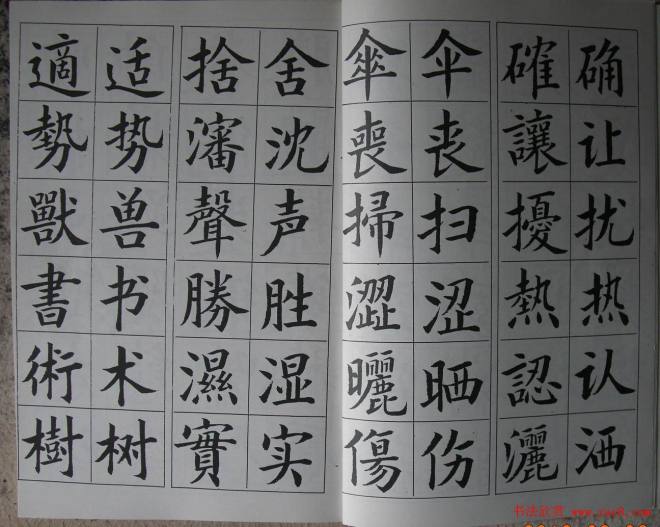 确让扰热认洒
確讓擾熱認灑
伞丧扫涩晒伤
傘喪掃澀曬傷
舍沈声胜湿实
捨瀋聲勝濕實
适势兽书术树
適勢獸書術樹
书法欣赏